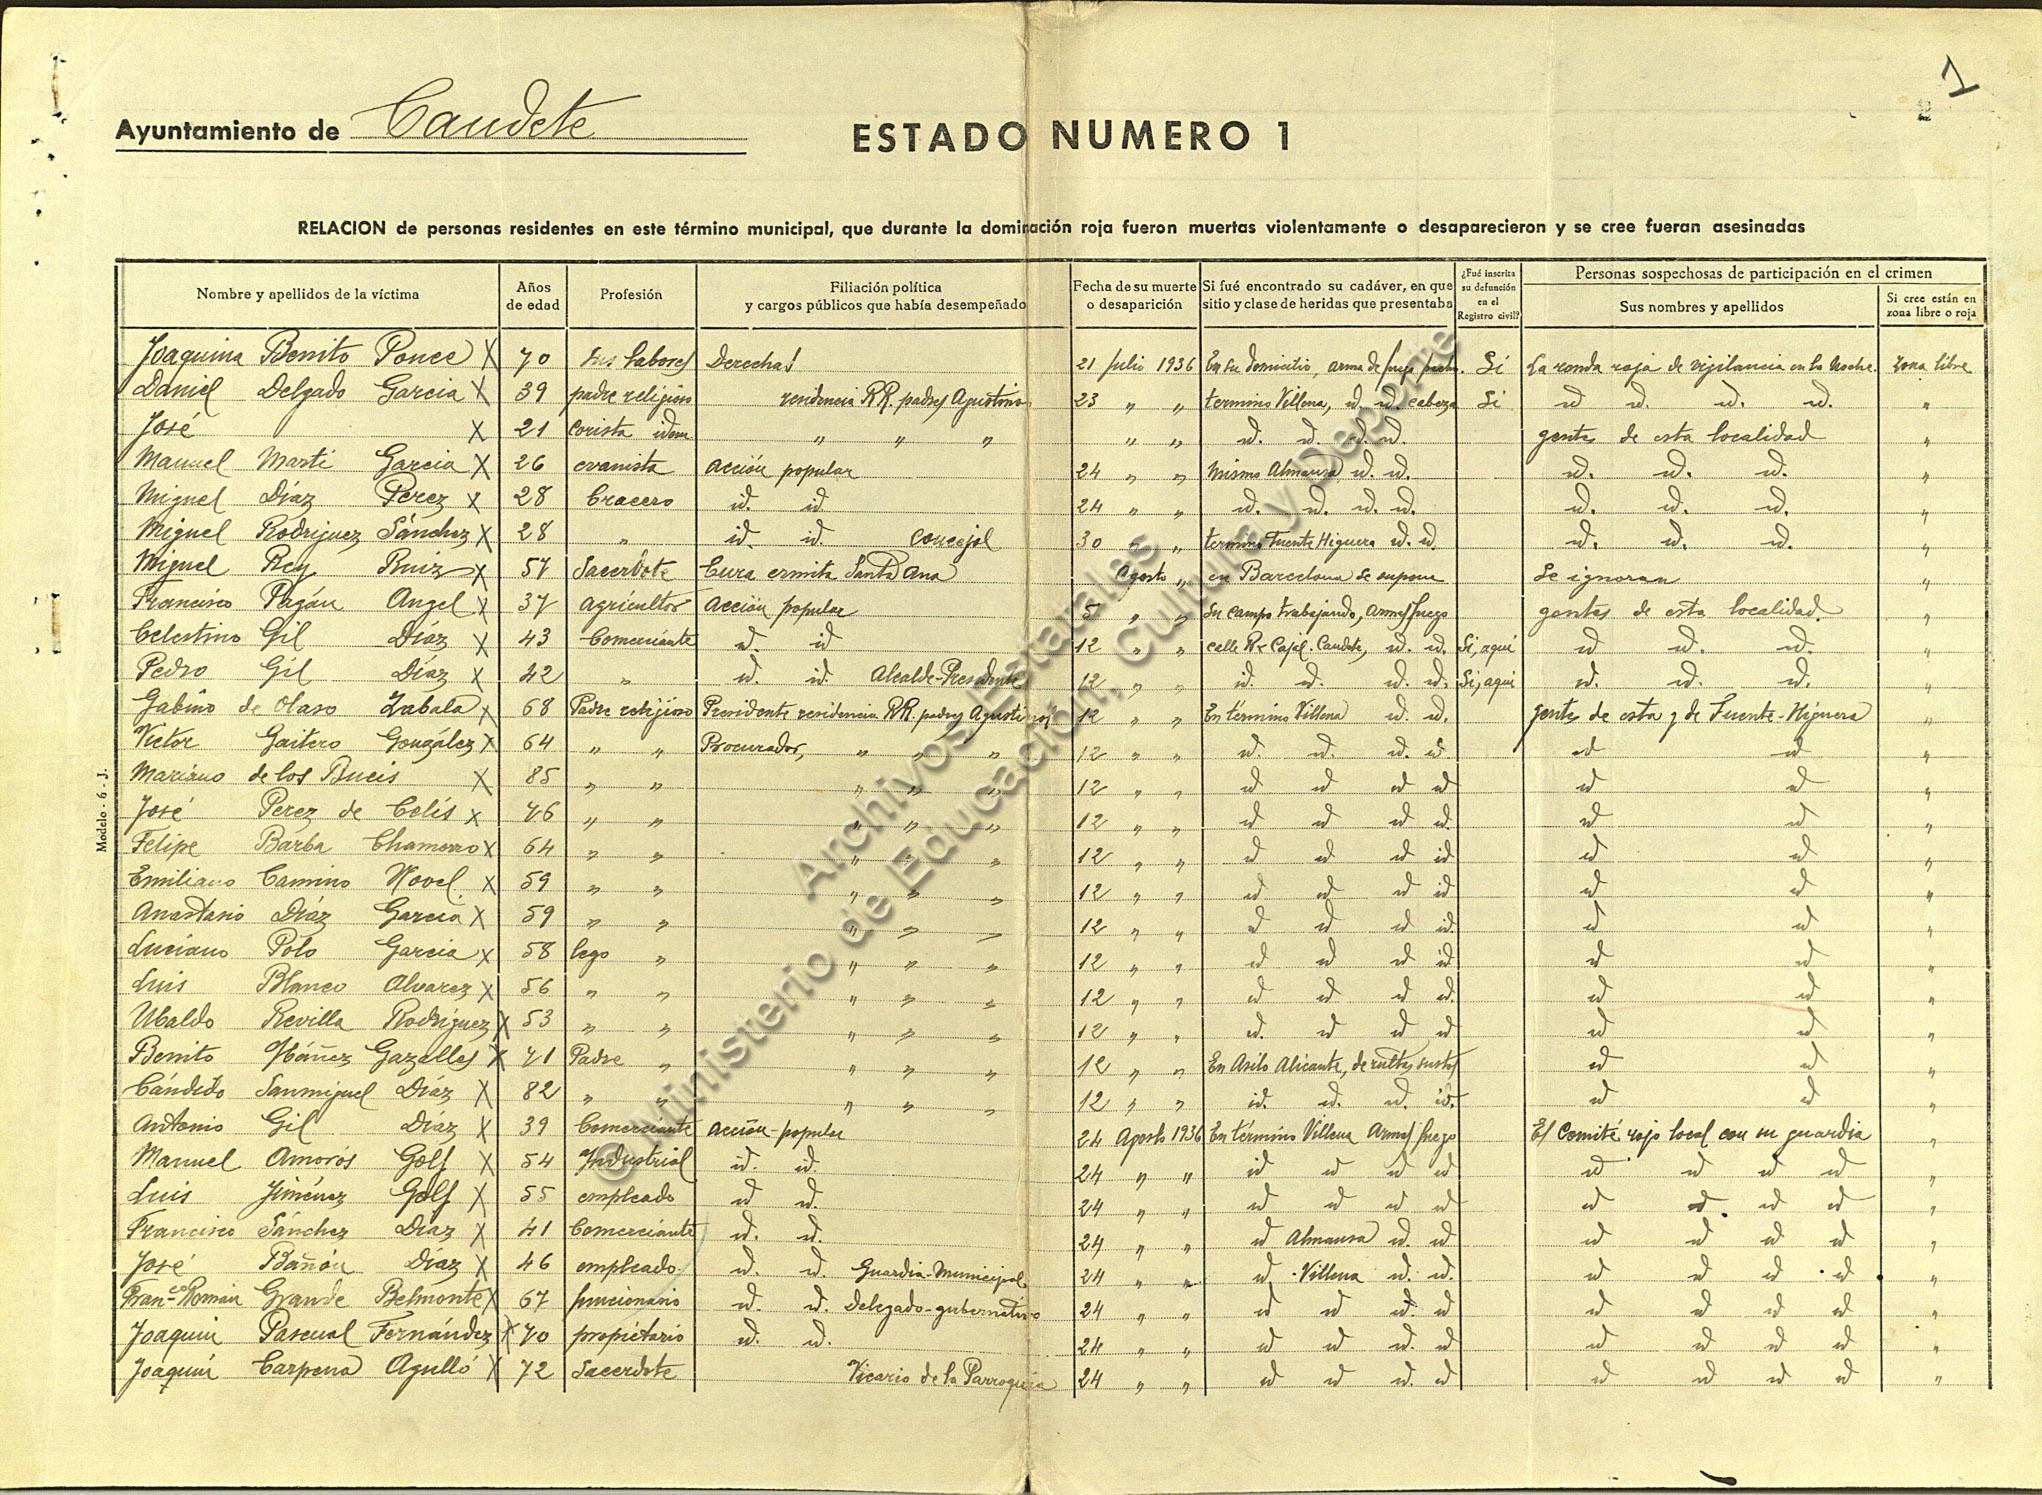 1
2
Ayuntamiento de Caudete
ESTADO NUMERO 1
RELACION de personas residentes en este término municipal, que durante la dominación roja fueron muertas violentamente o desaparecieron y se cree fueran asesinadas
Nombre y apellidos de la víctima Años de edad Profesión Filiación política y cargos públicos que había desempeñado Fecha de su muerte o desaparición Si fué encontrado su cadáver, en que sitio y clase de heridas que presentaba ¿Fué inscrita su defunción en el Registro civil? Personas sospechosas de participación en el crimen
Sus nombres y apellidos Si cree están en zona libre o roja
Joaquina Benito Ponce X 70 Sus labores Derechas 21 Julio 1936 En su domicilio, arma de fuego Si La ronda roja de vigilancia en la noche. Zona libre
Daniel Delgado Garcia X 39 padre religioso residencia RR. padres Agustinos 23 " " termino Villena, id. id. cabeza Si id id. id. id. "
José X 21 Corista idem " " " " " id. id. id. id. gentes de esta localidad "
Manuel Marti Garcia X 26 evanista Acción popular 24 " " Mismo Almansa id. id. id. id. id. "
Miguel Díaz Perez X 28 bracero id. id. 24 " " id. id. id. id. id. id. id. "
Miguel Rodriguez Sánchez X 28 " id. id. Concejal 30 " " termino Fuente Higuera id. id. id. id. id. "
Miguel Rey Ruiz X 57 Sacerdote Cura ermita Santa Ana Agosto " en Barcelona se supone Se ignoran "
Francisco Pagán Angel X 37 Agricultor Acción popular 5 " " Su campo trabajando, armas fuego gentes de esta localidad. "
Celestino Gil Díaz X 43 Comerciante id. id 12 " " calle R. Cajal. Caudete, id. id. Si, aqui id id. id. "
Pedro Gil Díaz X 42 " id. id. Alcalde-Presidente 12 " " id. id. id. id. Si, aqui id. id. id. "
Gabino de Olaso Zabala X 68 Padre relijioso Presidente residencia RR. padres Agustinos 12 " " En término Villena id. id. gentes de esta y de Fuente-Higuera "
Victor Gaitero González X 64 " " Procurador, " " " 12 " " id. id. id. id. id id "
Mariano de los Bueis X 85 " " " " " 12 " " id id id id id id "
José Perez de Celis X 46 " " " " " 12 " " id id id id. id id "
Felipe Barba Chamorro X 64 " " " " " 12 " " id id id id id id "
Emiliano Camino Novel X 59 " " " " " 12 " " id id id id id id "
Anastasio Díaz Garcia X 59 " " " " " 12 " " id id id id. id id "
Luciano Polo Garcia X 58 lego " " " " 12 " " id id id id. id id "
Luis Blanco Alvarez X 56 " " " " " 12 " " id id id id. id id "
Ubaldo Revilla Rodriguez X 53 " " " " " 12 " " id. id id id id id "
Benito Ybáñez Gazelles X 71 Padre " " " " 12 " " En Asilo Alicante, de sustos id id "
Cándido Sanmiguel Díaz X 82 " " " " " 12 " " id. id. id. id. id id "
Antonio Gil Díaz X 39 Comerciante Acción-popular 24 Agosto 1936 En término Villena Armas fuego El Comité rojo local con su guardia "
Manuel Amorós Golf X 54 Yndustrial id. id. 24 " " id id id id id id id id "
Luis Jiménez Golf X 55 empleado id id. 24 " " id id id id id id. id id "
Francisco Sánchez Díaz X 41 Comerciante id. id. 24 " " id Almansa id. id id id id id "
José Bañón Díaz X 46 empleado. id. id. Guardia-Municipal 24 " " id. Villena id. id. id id id id "
Fran.co Román Grande Belmonte X 67 funcionario id. id. Delegado-gubernativo 24 " " id id id. id id id id id "
Joaquin Pascual Fernández X 70 propietario id. id. 24 " " id id id. id id id id id "
Joaquin Carpena Agulló X 72 Sacerdote Vicario de la Parroquia 24 " " id id id. id id id id id "
Modelo - 6 - J.
© Ministerio de Educación, Cultura y Deporte
Archivos Estatales